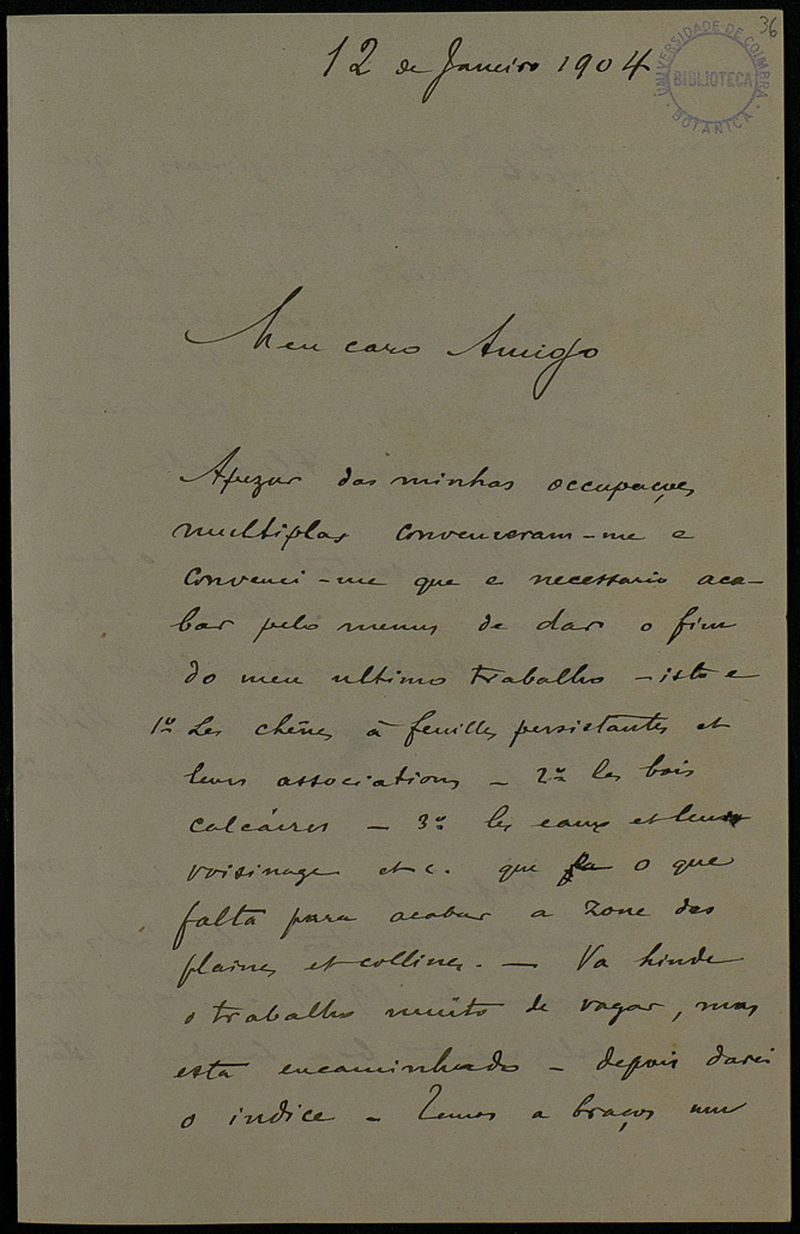 36
UNIVERSIDADE DE COIMBRA
BIBLIOTECA
BOTANICA
12 de Janeiro 1904
Meu caro Amigo
Apezar das minhas occupações
multiplas convenceram-me e
convenci-me que e necessario aca-
bar pelo menos de dar o fim
do meu ultimo trabalho - isto e
1º Les chênes à feuilles persistantes et
leurs associations - 2º les bois
calcáires - 3º les eaux et leur
voisinage etc. que o que
falta para acabar a zone des
plaines et collines. - Va hindo
o trabalho muito de vagar, mas
esta encaminhado - depois darei
o indice - Temos a braços um